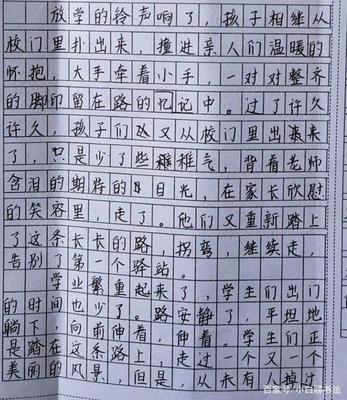 放学的铃声响了，孩子相继从
校门里扑出来，撞进亲人们温暖的
怀抱，大手牵着小手，一对对整齐
的脚印留在路的忆记中。过了许久
许久，孩子们又从校门里出来
了，只是少了些稚气，背着老师
含泪的期待的目光，在家长欣慰
的笑容里，走了。他们又重新踏上
了这条长长的路，拐弯，继续走，
告别了第一个驿站。
学业繁重起来了，学生们出门
的时间也少了。路安静了，平坦地
躺下，向前伸着，伸着。学生们正
是踏在这条路上，走过一个又一个
美丽的风景，但是，从未有人掉过
百家号/小白聊书法